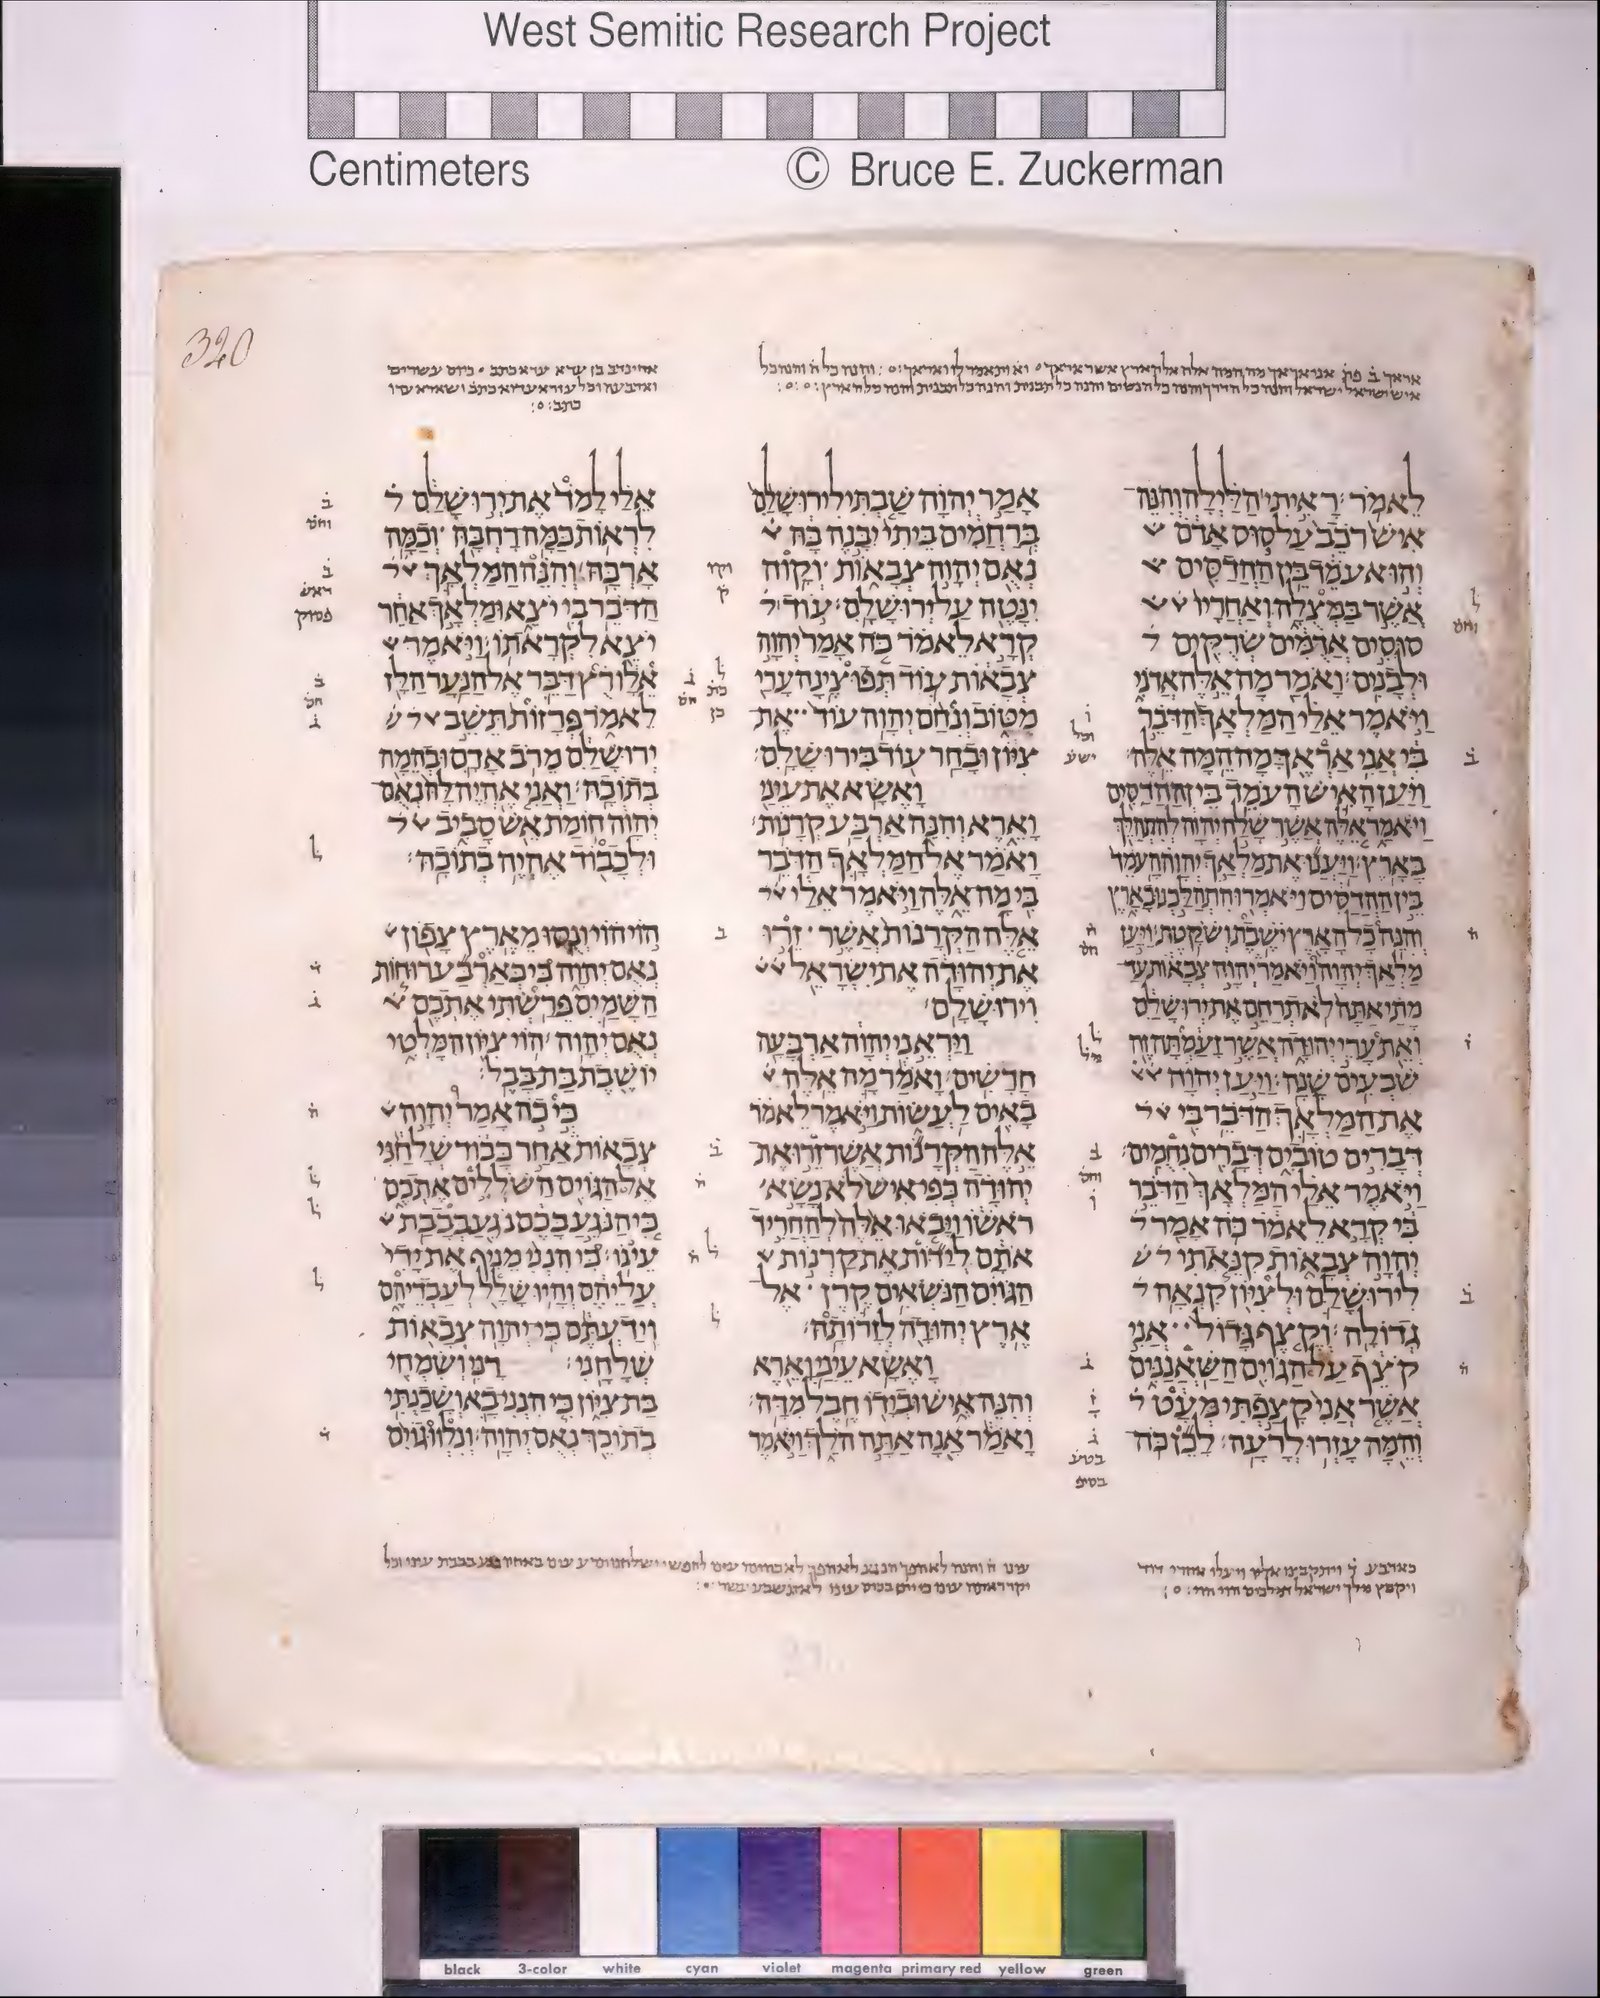 West Semitic Research Project
Centimeters © Bruce E. Zuckerman
320
לֵאמֹר׃ רָאִיתִי הַלַּיְלָה וְהִנֵּה
אִישׁ רֹכֵב עַל סוּס אָדֹם
וְהוּא עֹמֵד בֵּין הַהֲדַסִּים
אֲשֶׁר בַּמְּצֻלָה וְאַחֲרָיו
סוּסִים אֲדֻמִּים שְׂרֻקִּים
וּלְבָנִים׃ וָאֹמַר מָה אֵלֶּה אֲדֹנִי
וַיֹּאמֶר אֵלַי הַמַּלְאָךְ הַדֹּבֵר
בִּי אֲנִי אַרְאֶךָּ מָה הֵמָּה אֵלֶּה׃
וַיַּעַן הָאִישׁ הָעֹמֵד בֵּין הַהֲדַסִּים
וַיֹּאמַר אֵלֶּה אֲשֶׁר שָׁלַח יְהוָה לְהִתְהַלֵּךְ
בָּאָרֶץ׃ וַיַּעֲנוּ אֶת מַלְאַךְ יְהוָה הָעֹמֵד
בֵּין הַהֲדַסִּים וַיֹּאמְרוּ הִתְהַלַּכְנוּ בָאָרֶץ
וְהִנֵּה כָל הָאָרֶץ יֹשֶׁבֶת וְשֹׁקָטֶת׃ וַיַּעַן
מַלְאַךְ יְהוָה וַיֹּאמַר יְהוָה צְבָאוֹת עַד
מָתַי אַתָּה לֹא תְרַחֵם אֶת יְרוּשָׁלִַם
וְאֵת עָרֵי יְהוּדָה אֲשֶׁר זָעַמְתָּה זֶה
שִׁבְעִים שָׁנָה׃ וַיַּעַן יְהוָה
אֶת הַמַּלְאָךְ הַדֹּבֵר בִּי
דְּבָרִים טוֹבִים דְּבָרִים נִחֻמִים׃
וַיֹּאמֶר אֵלַי הַמַּלְאָךְ הַדֹּבֵר
בִּי קְרָא לֵאמֹר כֹּה אָמַר
יְהוָה צְבָאוֹת קִנֵּאתִי
לִירוּשָׁלִַם וּלְצִיּוֹן קִנְאָה
גְדוֹלָה׃ וְקֶצֶף גָּדוֹל אֲנִי
קֹצֵף עַל הַגּוֹיִם הַשַּׁאֲנַנִּים
אֲשֶׁר אֲנִי קָצַפְתִּי מְּעָט
וְהֵמָּה עָזְרוּ לְרָעָה׃ לָכֵן כֹּה
אָמַר יְהוָה שַׁבְתִּי לִירוּשָׁלִַם
בְּרַחֲמִים בֵּיתִי יִבָּנֶה בָּהּ
נְאֻם יְהוָה צְבָאוֹת וְקָוה
יִנָּטֶה עַל יְרוּשָׁלִָם׃ עוֹד
קְרָא לֵאמֹר כֹּה אָמַר יְהוָה
צְבָאוֹת עוֹד תְּפוּצֶינָה עָרַי
מִטּוֹב וְנִחַם יְהוָה עוֹד אֶת
צִיּוֹן וּבָחַר עוֹד בִּירוּשָׁלִָם׃
וָאֶשָּׂא אֶת עֵינַי
וָאֵרֶא וְהִנֵּה אַרְבַּע קְרָנוֹת׃
וָאֹמַר אֶל הַמַּלְאָךְ הַדֹּבֵר
בִּי מָה אֵלֶּה וַיֹּאמֶר אֵלַי
אֵלֶּה הַקְּרָנוֹת אֲשֶׁר זֵרוּ
אֶת יְהוּדָה אֶת יִשְׂרָאֵל
וִירוּשָׁלִָם׃
וַיַּרְאֵנִי יְהוָה אַרְבָּעָה
חָרָשִׁים׃ וָאֹמַר מָה אֵלֶּה
בָאִים לַעֲשׂוֹת וַיֹּאמֶר לֵאמֹר
אֵלֶּה הַקְּרָנוֹת אֲשֶׁר זֵרוּ אֶת
יְהוּדָה כְּפִי אִישׁ לֹא נָשָׂא
רֹאשׁוֹ וַיָּבֹאוּ אֵלֶּה לְהַחֲרִיד
אֹתָם לְיַדּוֹת אֶת קַרְנוֹת
הַגּוֹיִם הַנֹּשְׂאִים קֶרֶן אֶל
אֶרֶץ יְהוּדָה לְזָרוֹתָהּ׃
וָאֶשָּׂא עֵינַי וָאֵרֶא
וְהִנֵּה אִישׁ וּבְיָדוֹ חֶבֶל מִדָּה׃
וָאֹמַר אָנָה אַתָּה הֹלֵךְ וַיֹּאמֶר
אֵלַי לָמֹד אֶת יְרוּשָׁלִַם
לִרְאוֹת כַּמָּה רָחְבָּהּ וְכַמָּה
אָרְכָּהּ׃ וְהִנֵּה הַמַּלְאָךְ
הַדֹּבֵר בִּי יֹצֵא וּמַלְאָךְ אַחֵר
יֹצֵא לִקְרָאתוֹ׃ וַיֹּאמֶר
אֵלָו רֻץ דַּבֵּר אֶל הַנַּעַר הַלָּז
לֵאמֹר פְּרָזוֹת תֵּשֵׁב
יְרוּשָׁלִַם מֵרֹב אָדָם וּבְהֵמָה
בְּתוֹכָהּ׃ וַאֲנִי אֶהְיֶה לָּהּ נְאֻם
יְהוָה חוֹמַת אֵשׁ סָבִיב
וּלְכָבוֹד אֶהְיֶה בְתוֹכָהּ׃
הוֹי הוֹי וְנֻסוּ מֵאֶרֶץ צָפוֹן
נְאֻם יְהוָה כִּי כְּאַרְבַּע רוּחוֹת
הַשָּׁמַיִם פֵּרַשְׂתִּי אֶתְכֶם
נְאֻם יְהוָה׃ הוֹי צִיּוֹן הִמָּלְטִי
יוֹשֶׁבֶת בַּת בָּבֶל׃
כִּי כֹה אָמַר יְהוָה
צְבָאוֹת אַחַר כָּבוֹד שְׁלָחַנִי
אֶל הַגּוֹיִם הַשֹּׁלְלִים אֶתְכֶם
כִּי הַנֹּגֵעַ בָּכֶם נֹגֵעַ בְּבָבַת
עֵינוֹ׃ כִּי הִנְנִי מֵנִיף אֶת יָדִי
עֲלֵיהֶם וְהָיוּ שָׁלָל לְעַבְדֵיהֶם
וִידַעְתֶּם כִּי יְהוָה צְבָאוֹת
שְׁלָחָנִי׃ רָנִּי וְשִׂמְחִי
בַּת צִיּוֹן כִּי הִנְנִי בָא וְשָׁכַנְתִּי
בְתוֹכֵךְ נְאֻם יְהוָה׃ וְנִלְווּ גוֹיִם
black 3-color white cyan violet magenta primary red yellow green